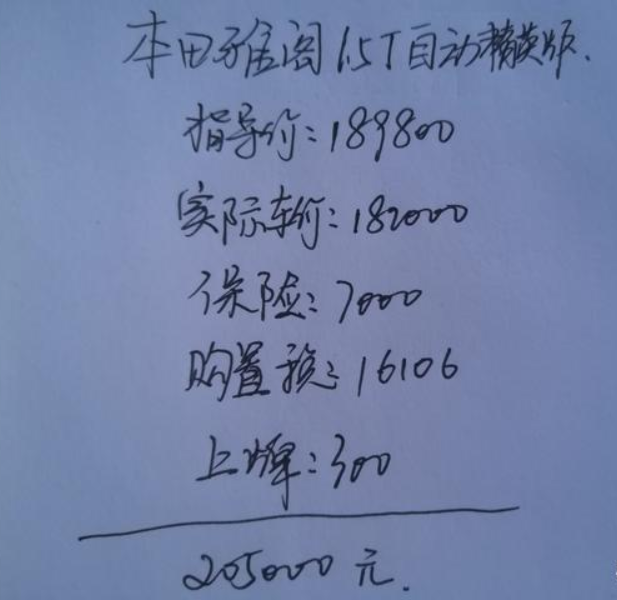 本田雅阁1.5T自动精英版.
指导价:189800
实际车价:182000
保险:7000
购置税:16106
上牌:300
205000元.